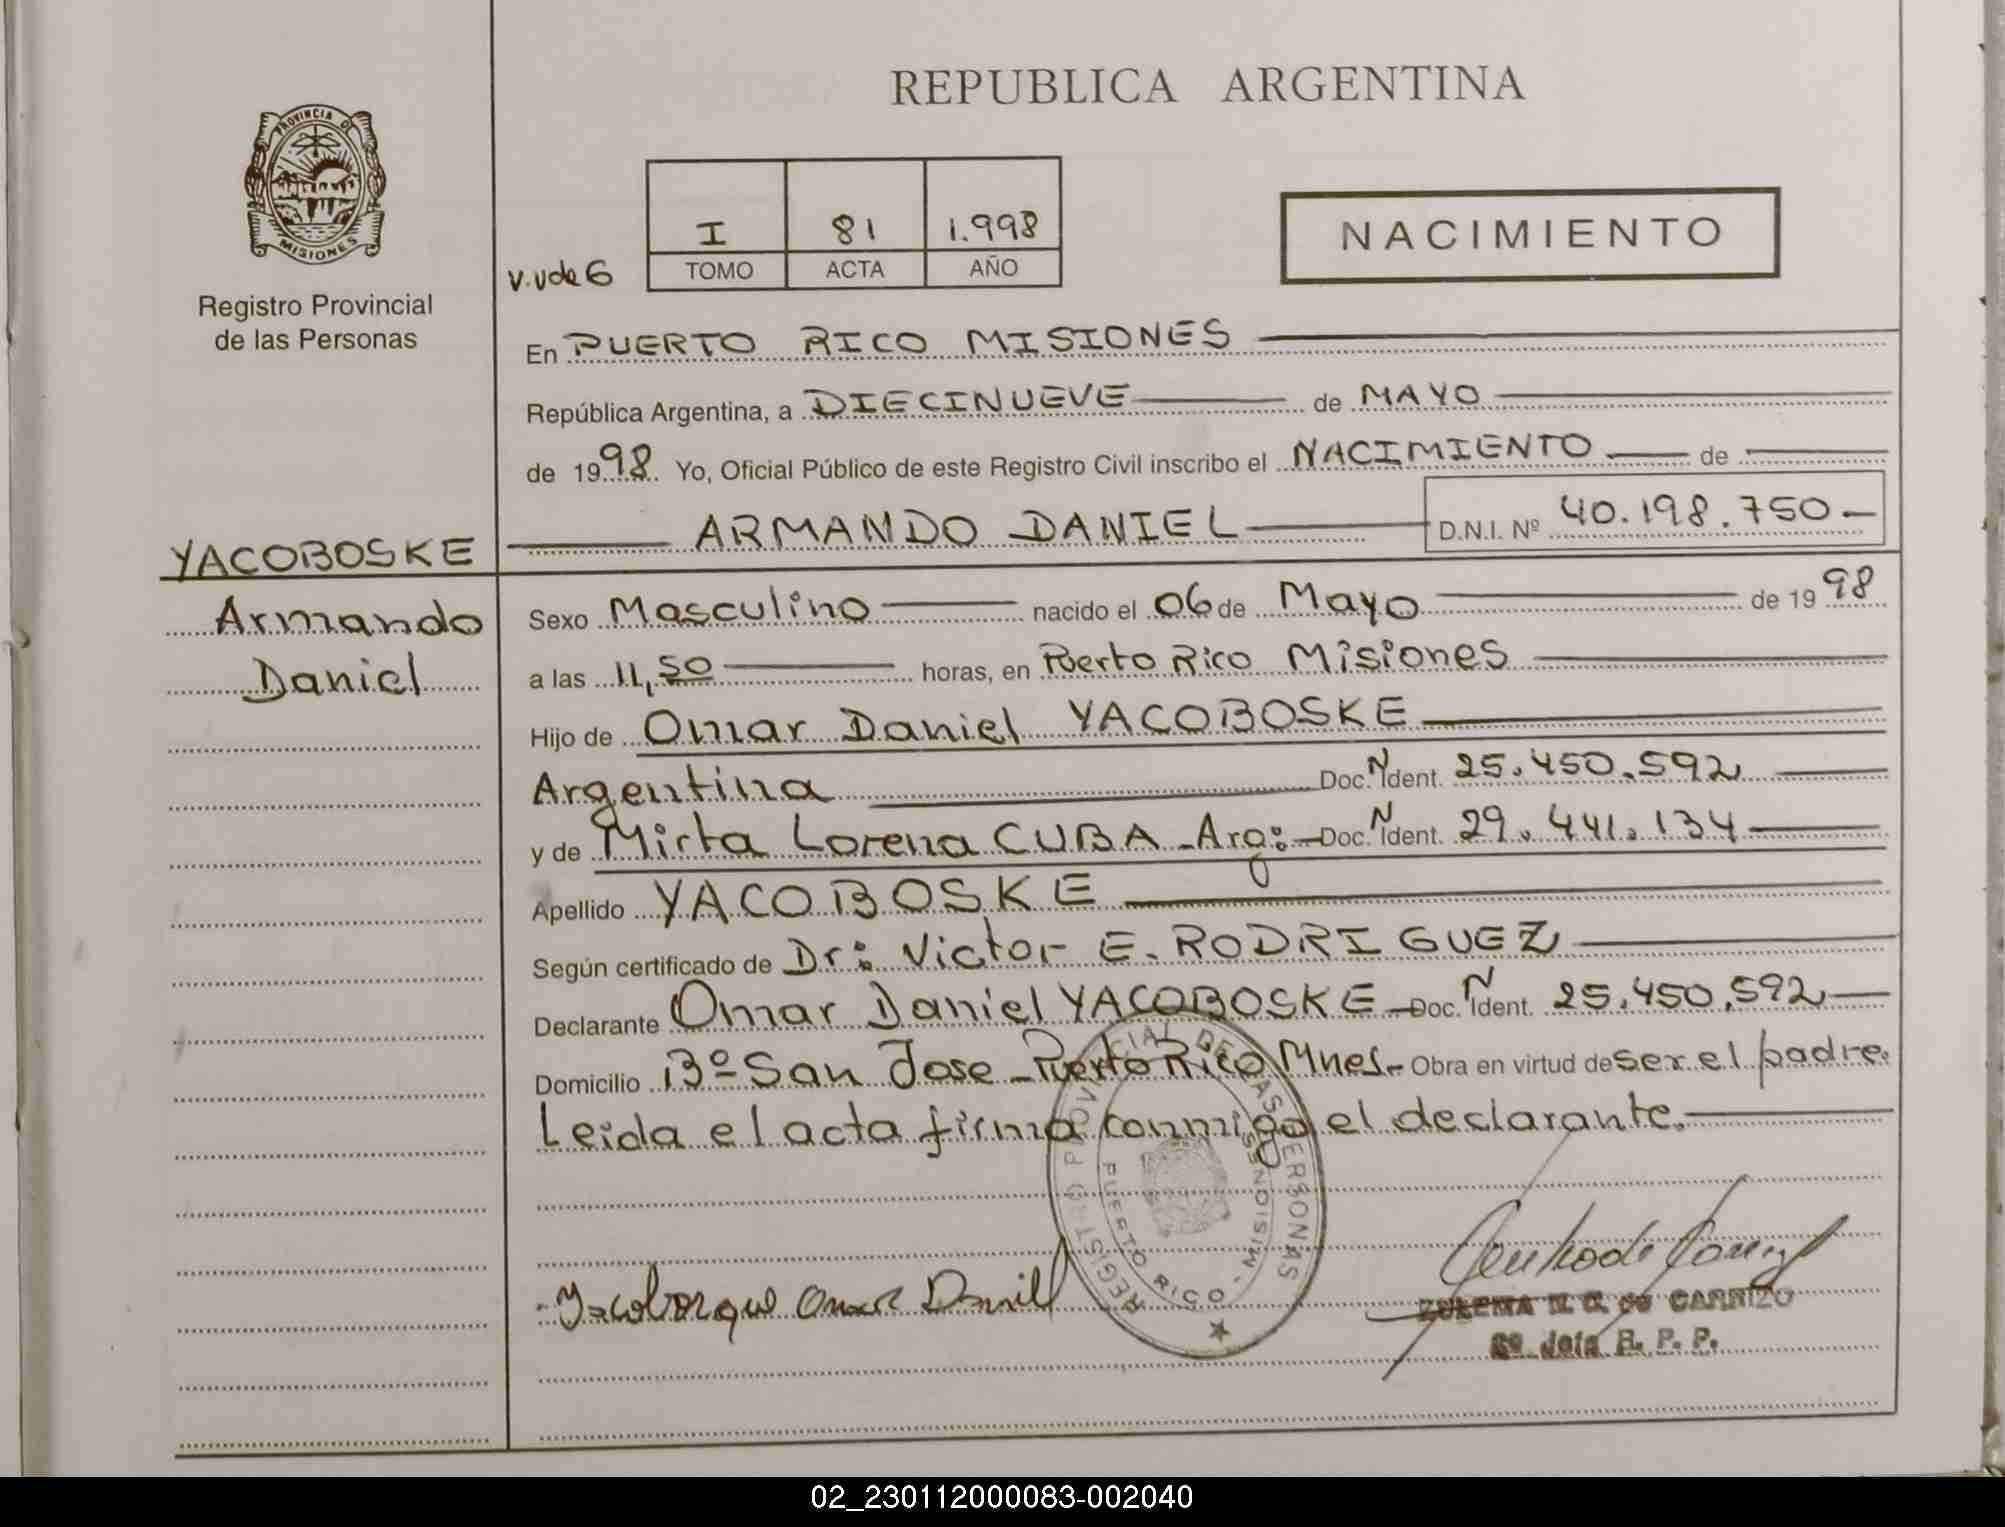 REPUBLICA ARGENTINA
PROVINCIA DE
MISIONES
Registro Provincial
de las Personas
I 81 1.998
TOMO ACTA AÑO
NACIMIENTO
En PUERTO RICO MISIONES
República Argentina, a DIECINUEVE de MAYO
de 1998 Yo, Oficial Público de este Registro Civil inscribo el NACIMIENTO de
ARMANDO DANIEL D.N.I. Nº 40.198.750-
YACOBOSKE
Armando
Daniel
Sexo Masculino nacido el 06 de Mayo de 1998
a las 11,50 horas, en Puerto Rico Misiones
Hijo de Omar Daniel YACOBOSKE
Argentina Doc. N Ident. 25.450.592
y de Mirta Lorena CUBA - Arg: Doc. N Ident. 29.441.134
Apellido YACOBOSKE
Según certificado de Dr: Victor E. RODRIGUEZ
Declarante Omar Daniel YACOBOSKE - Doc. N Ident. 25.450.592
Domicilio Bº San Jose - Puerto Rico Mnes - Obra en virtud de ser el padre.
Leida el acta firma conmigo el declarante.
REGISTRO PROVINCIAL DE LAS PERSONAS
PUERTO RICO - MISIONES
Omar Daniel
ZULEMA de CARRIZO
R. P. P.
02_230112000083-002040